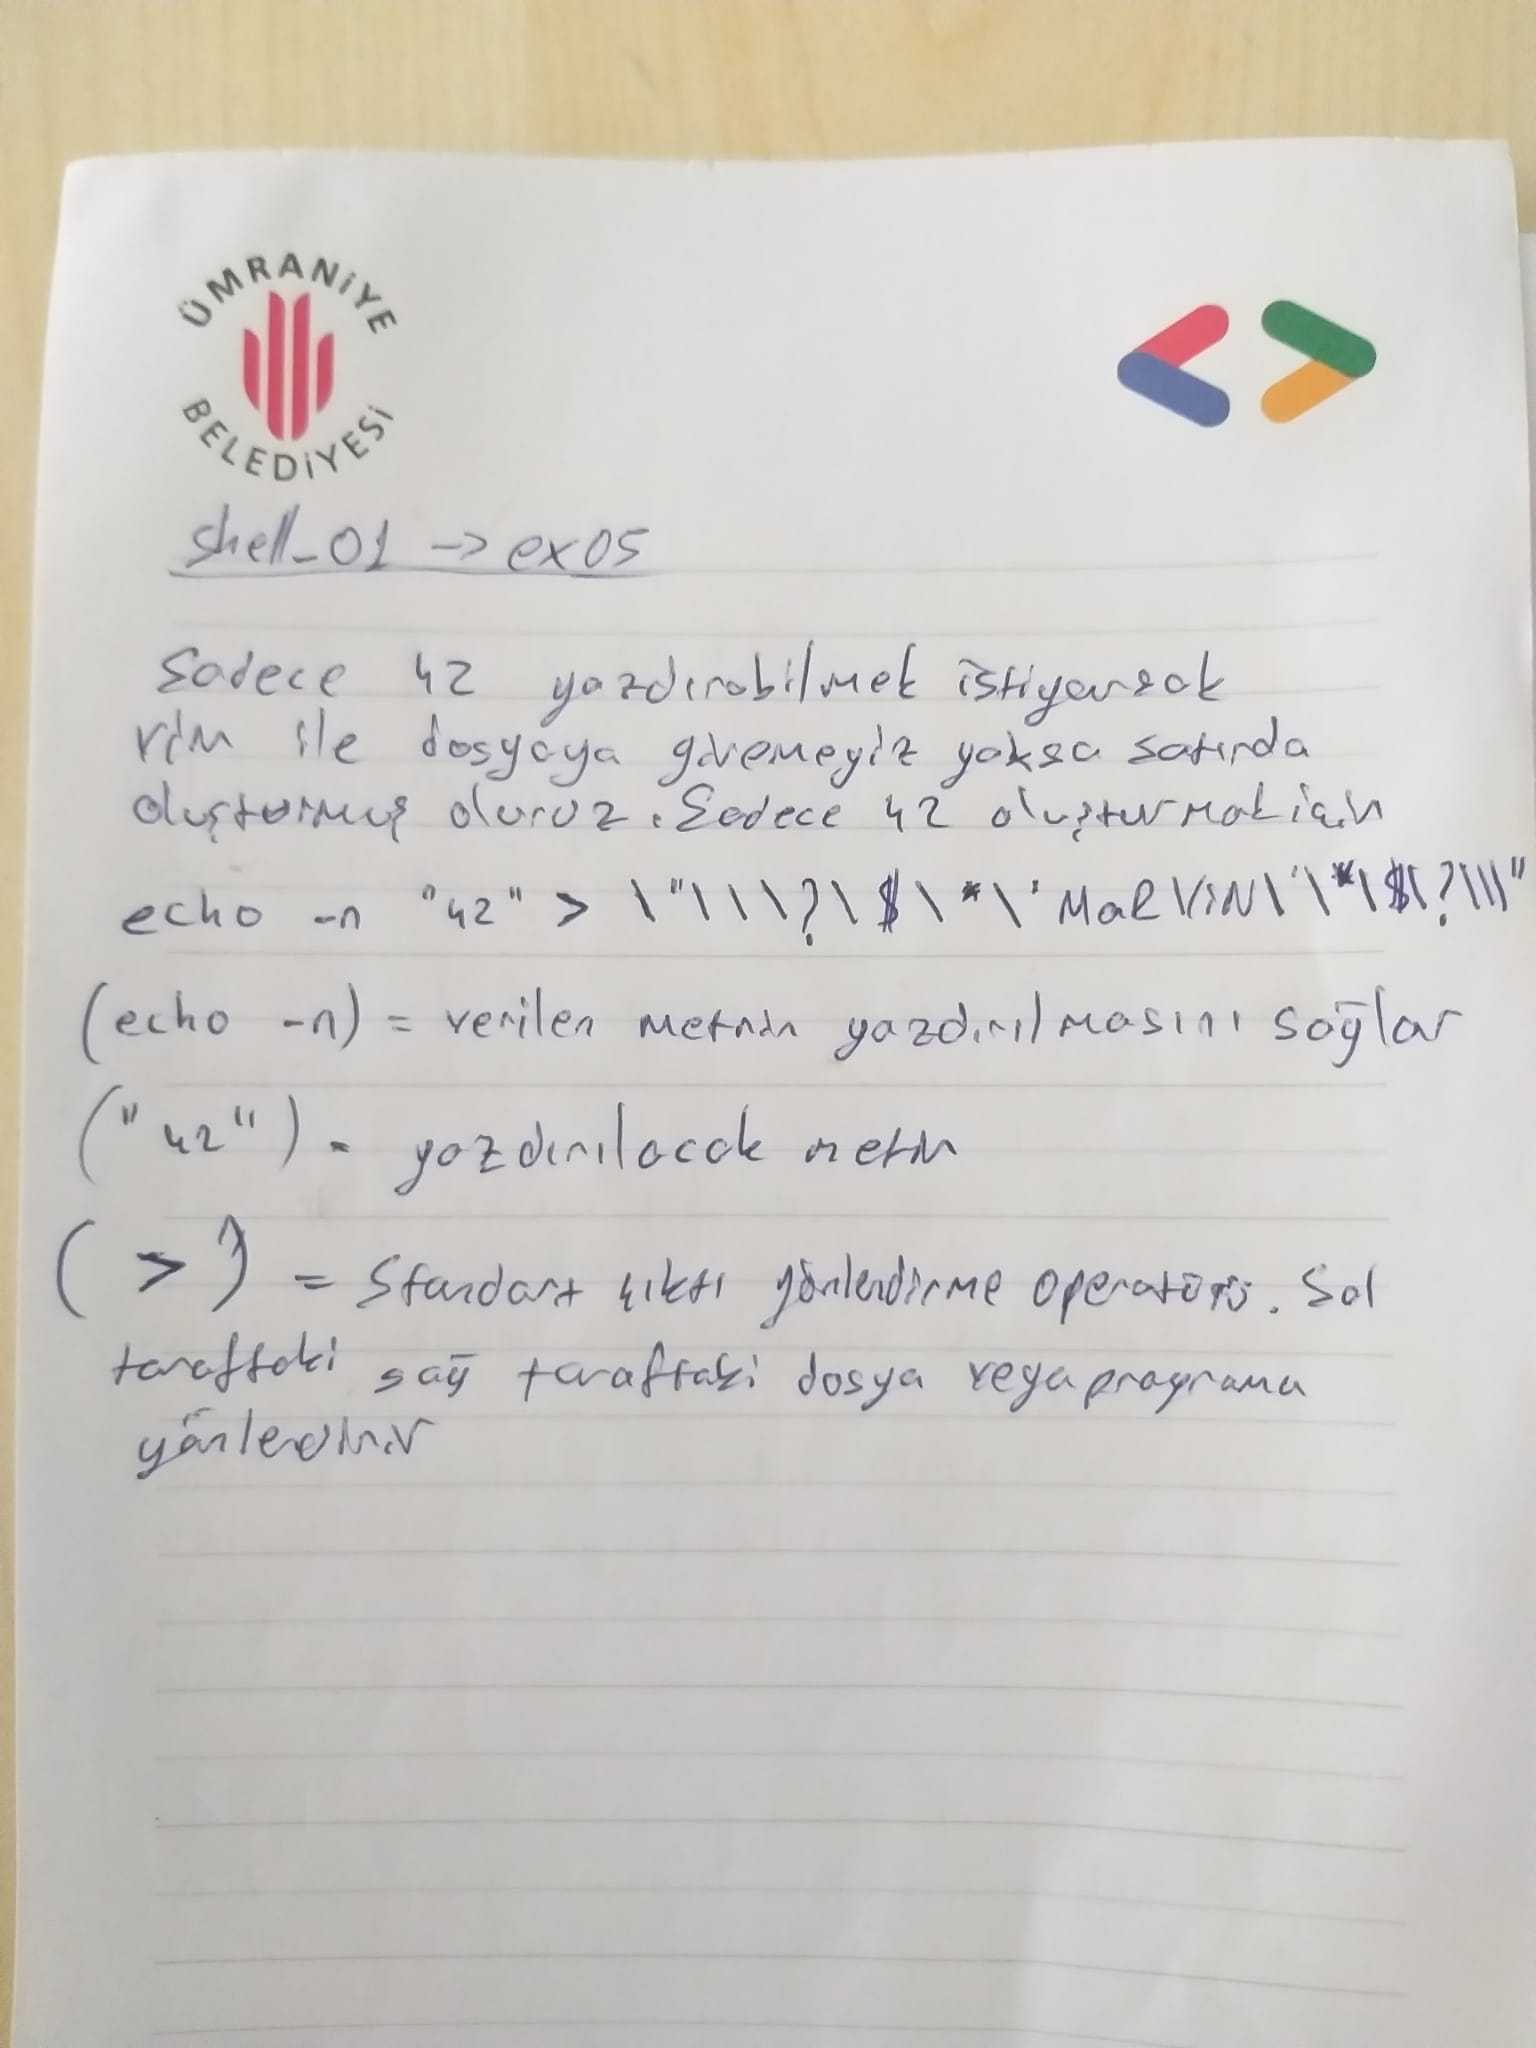 ÜMRANİYE
BELEDİYESİ
shell_01 -> ex05
Sadece 42 yazdırabilmek istiyorsak
vim ile dosyaya giremeyiz yoksa satırda
oluşturmuş oluruz. Sadece 42 oluşturmak için
echo -n "42" > \"\\\?\$\*\'MaRViN\'\*\$\?\\\"
(echo -n) = verilen metnin yazdırılmasını sağlar
("42") = yazdırılacak metin
(>) = Standart çıktı yönlendirme operatörü. Sol
taraftaki sağ taraftaki dosya veya programa
yönlendirir